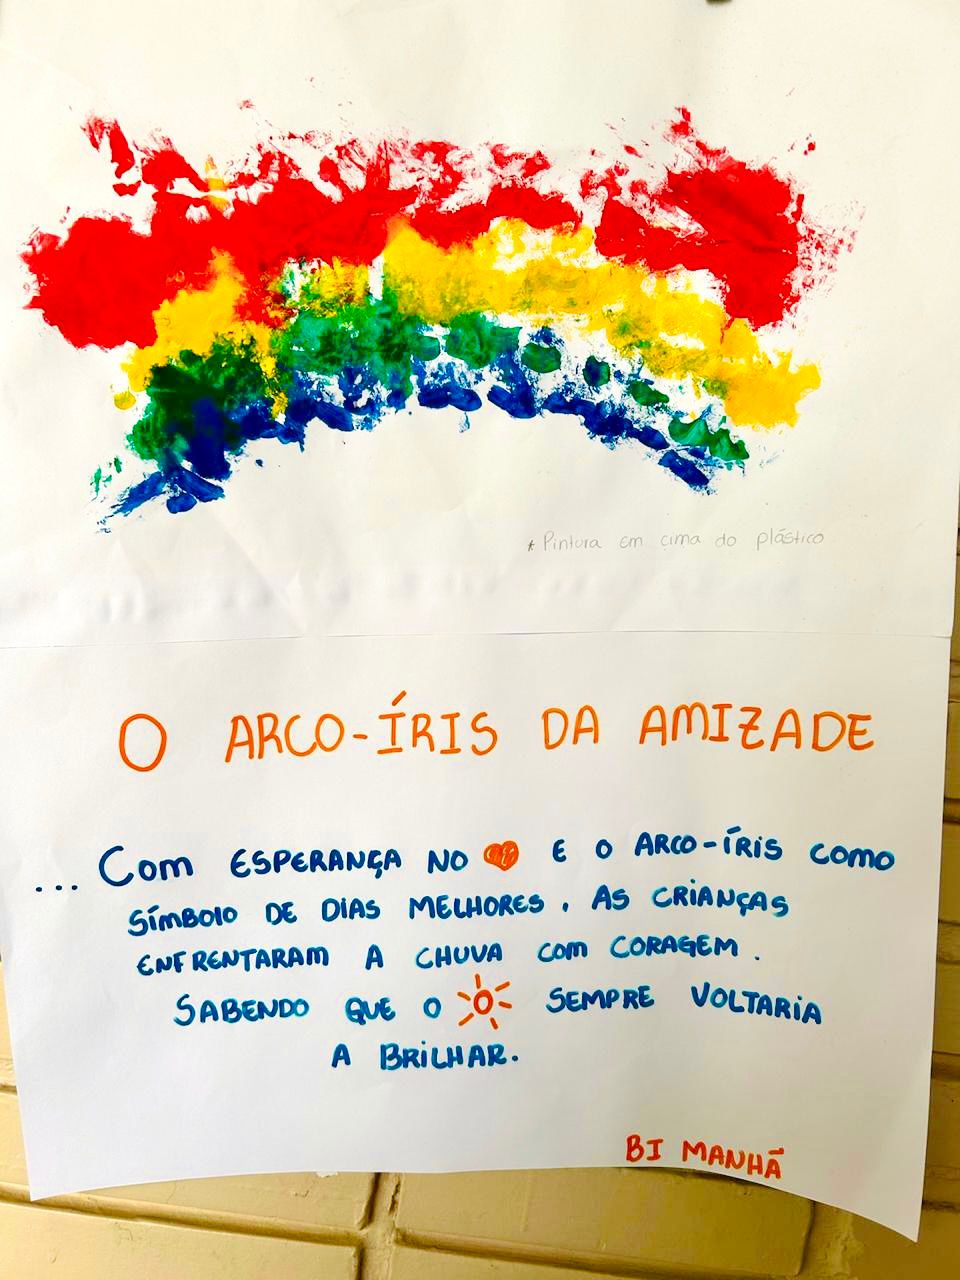 * Pintura em cima do plástico
O ARCO-ÍRIS DA AMIZADE
... Com ESPERANÇA NO E O ARCO-ÍRIS COMO
SÍMBOLO DE DIAS MELHORES, AS CRIANÇAS
ENFRENTARAM A CHUVA COM CORAGEM.
SABENDO QUE O SEMPRE VOLTARIA
A BRILHAR.
BI MANHÃ